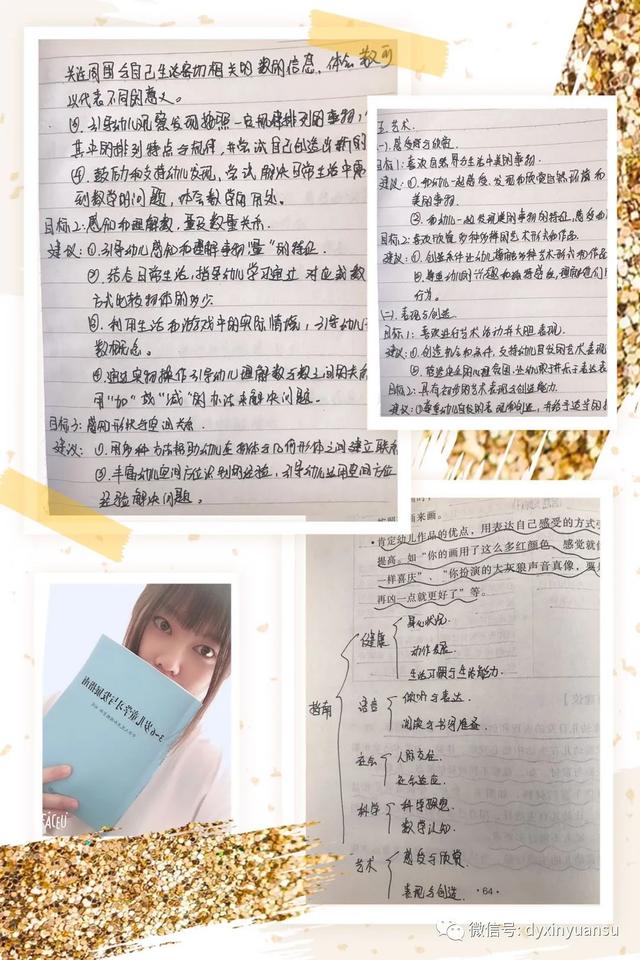 关注周围与自己生活密切相关的数的信息，体会数可
以代表不同的意义。
③.引导幼儿观察发现按照一定规律排列的事物，
其中的排列特点与规律，并尝试自己创造出新的
④.鼓励和支持幼儿发现、尝试解决日常生活中需
到数学的问题，体会数学的用处。
目标2：感知和理解数、量及数量关系。
建议：①.引导幼儿感知和理解事物"量"的特征.
②.结合日常生活，指导幼儿学习通过 对应或数
方式比较物体的多少.
③.利用生活和游戏中的实际情境，引导幼儿
数概念。
④.通过实物操作引导幼儿理解数与数之间的关系
用"加"或"减"的办法来解决问题。
目标3：感知形状与空间关系.
建议：①.用多种方法帮助幼儿在物体与几何形体之间建立联系
②.丰富幼儿空间方位识别的经验，引导幼儿运用空间方位
经验解决问题。
五.艺术.
(一).感受与欣赏.
目标1：喜欢自然界与生活中美的事物.
建议：①.和幼儿一起感受、发现和欣赏自然环境和
美的事物.
②.和幼儿一起发现美的事物的特征，感受和
目标2：喜欢欣赏多种多样的艺术形式和作品.
建议：①.创造条件让幼儿接触多种艺术形式和作品
②.尊重幼儿的兴趣和独特感受，理解他们
行为。
(二).表现与创造.
目标1：喜欢进行艺术活动并大胆表现.
建议：①.创造机会和条件，支持幼儿自发的艺术表现
②.营造安全的心理氛围，让幼儿敢于并乐于表达表
目标2：具有初步的艺术表现与创造能力.
建议：①尊重幼儿自发的表现和创造，并给予适当的
画来画。
·肯定幼儿作品的优点，用表达自己感受的方式
提高。如“你的画用了这么多红颜色，感觉就
一样喜庆”、“你扮演的大灰狼声音真像，要是
再凶一点就更好了”等。
指南
健康
身心状况.
动作发展.
生活习惯与生活能力.
语言
倾听与表达
阅读与书写准备.
社会
人际交往.
社会适应.
科学
科学探究.
数学认知.
艺术
感受与欣赏
表现与创造.
·64·
3~6岁儿童学习与发展指南
FACEU
微信号: dyxinyuansu